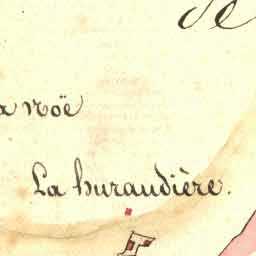 de
a Noë
La huraudière.